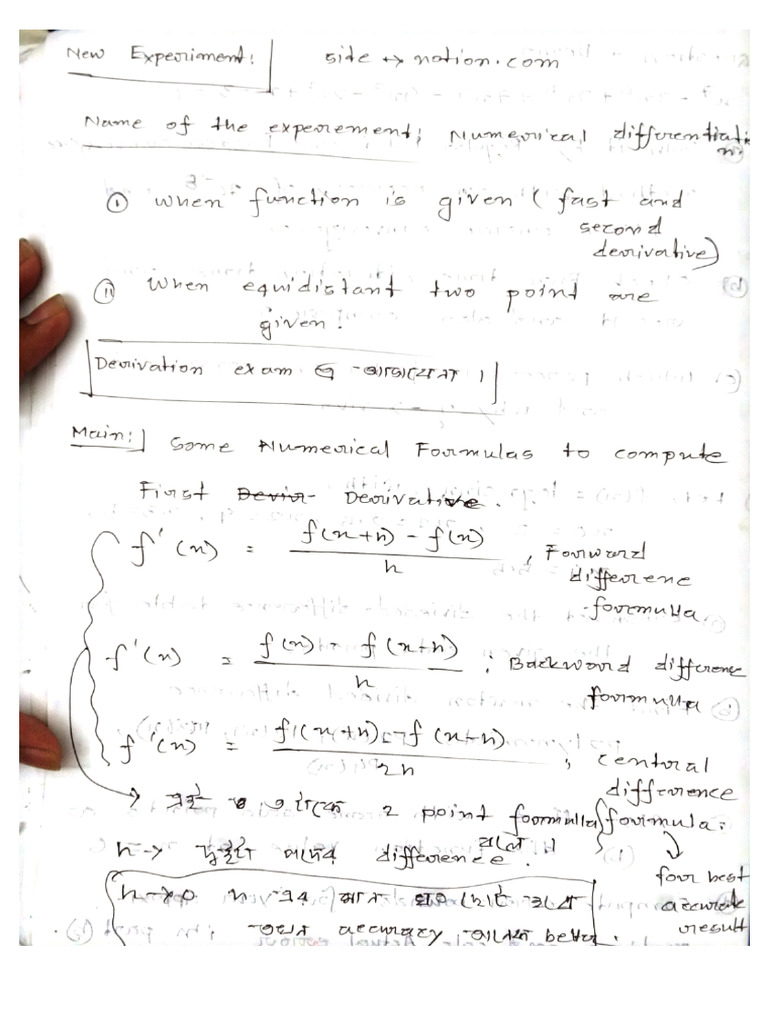 New Experiment: side ↔ notion.com
Name of the experement; Numerical differentiation
① when function is given (fast and
second
derivative)
② When equidistant two point are
given.
Derivation exam এ আসবেনা।
Main: Some Numerical Formulas to compute
First Derivative.
f'(x) = f(x+h) - f(x) / h , Forward
differene
formula.
f'(x) = f(x) - f(x+h) / h ; Backward difference
formula
f'(x) = f(x+h) - f(x-h) / 2h ; central
difference
→ এই ৩ টাকে 2 point formula formula.
বলে।
h → দুইটা পদের difference.
for best
accurate
result
h→0 h এর মান যত ছোট হবে
তখন accuracy better.